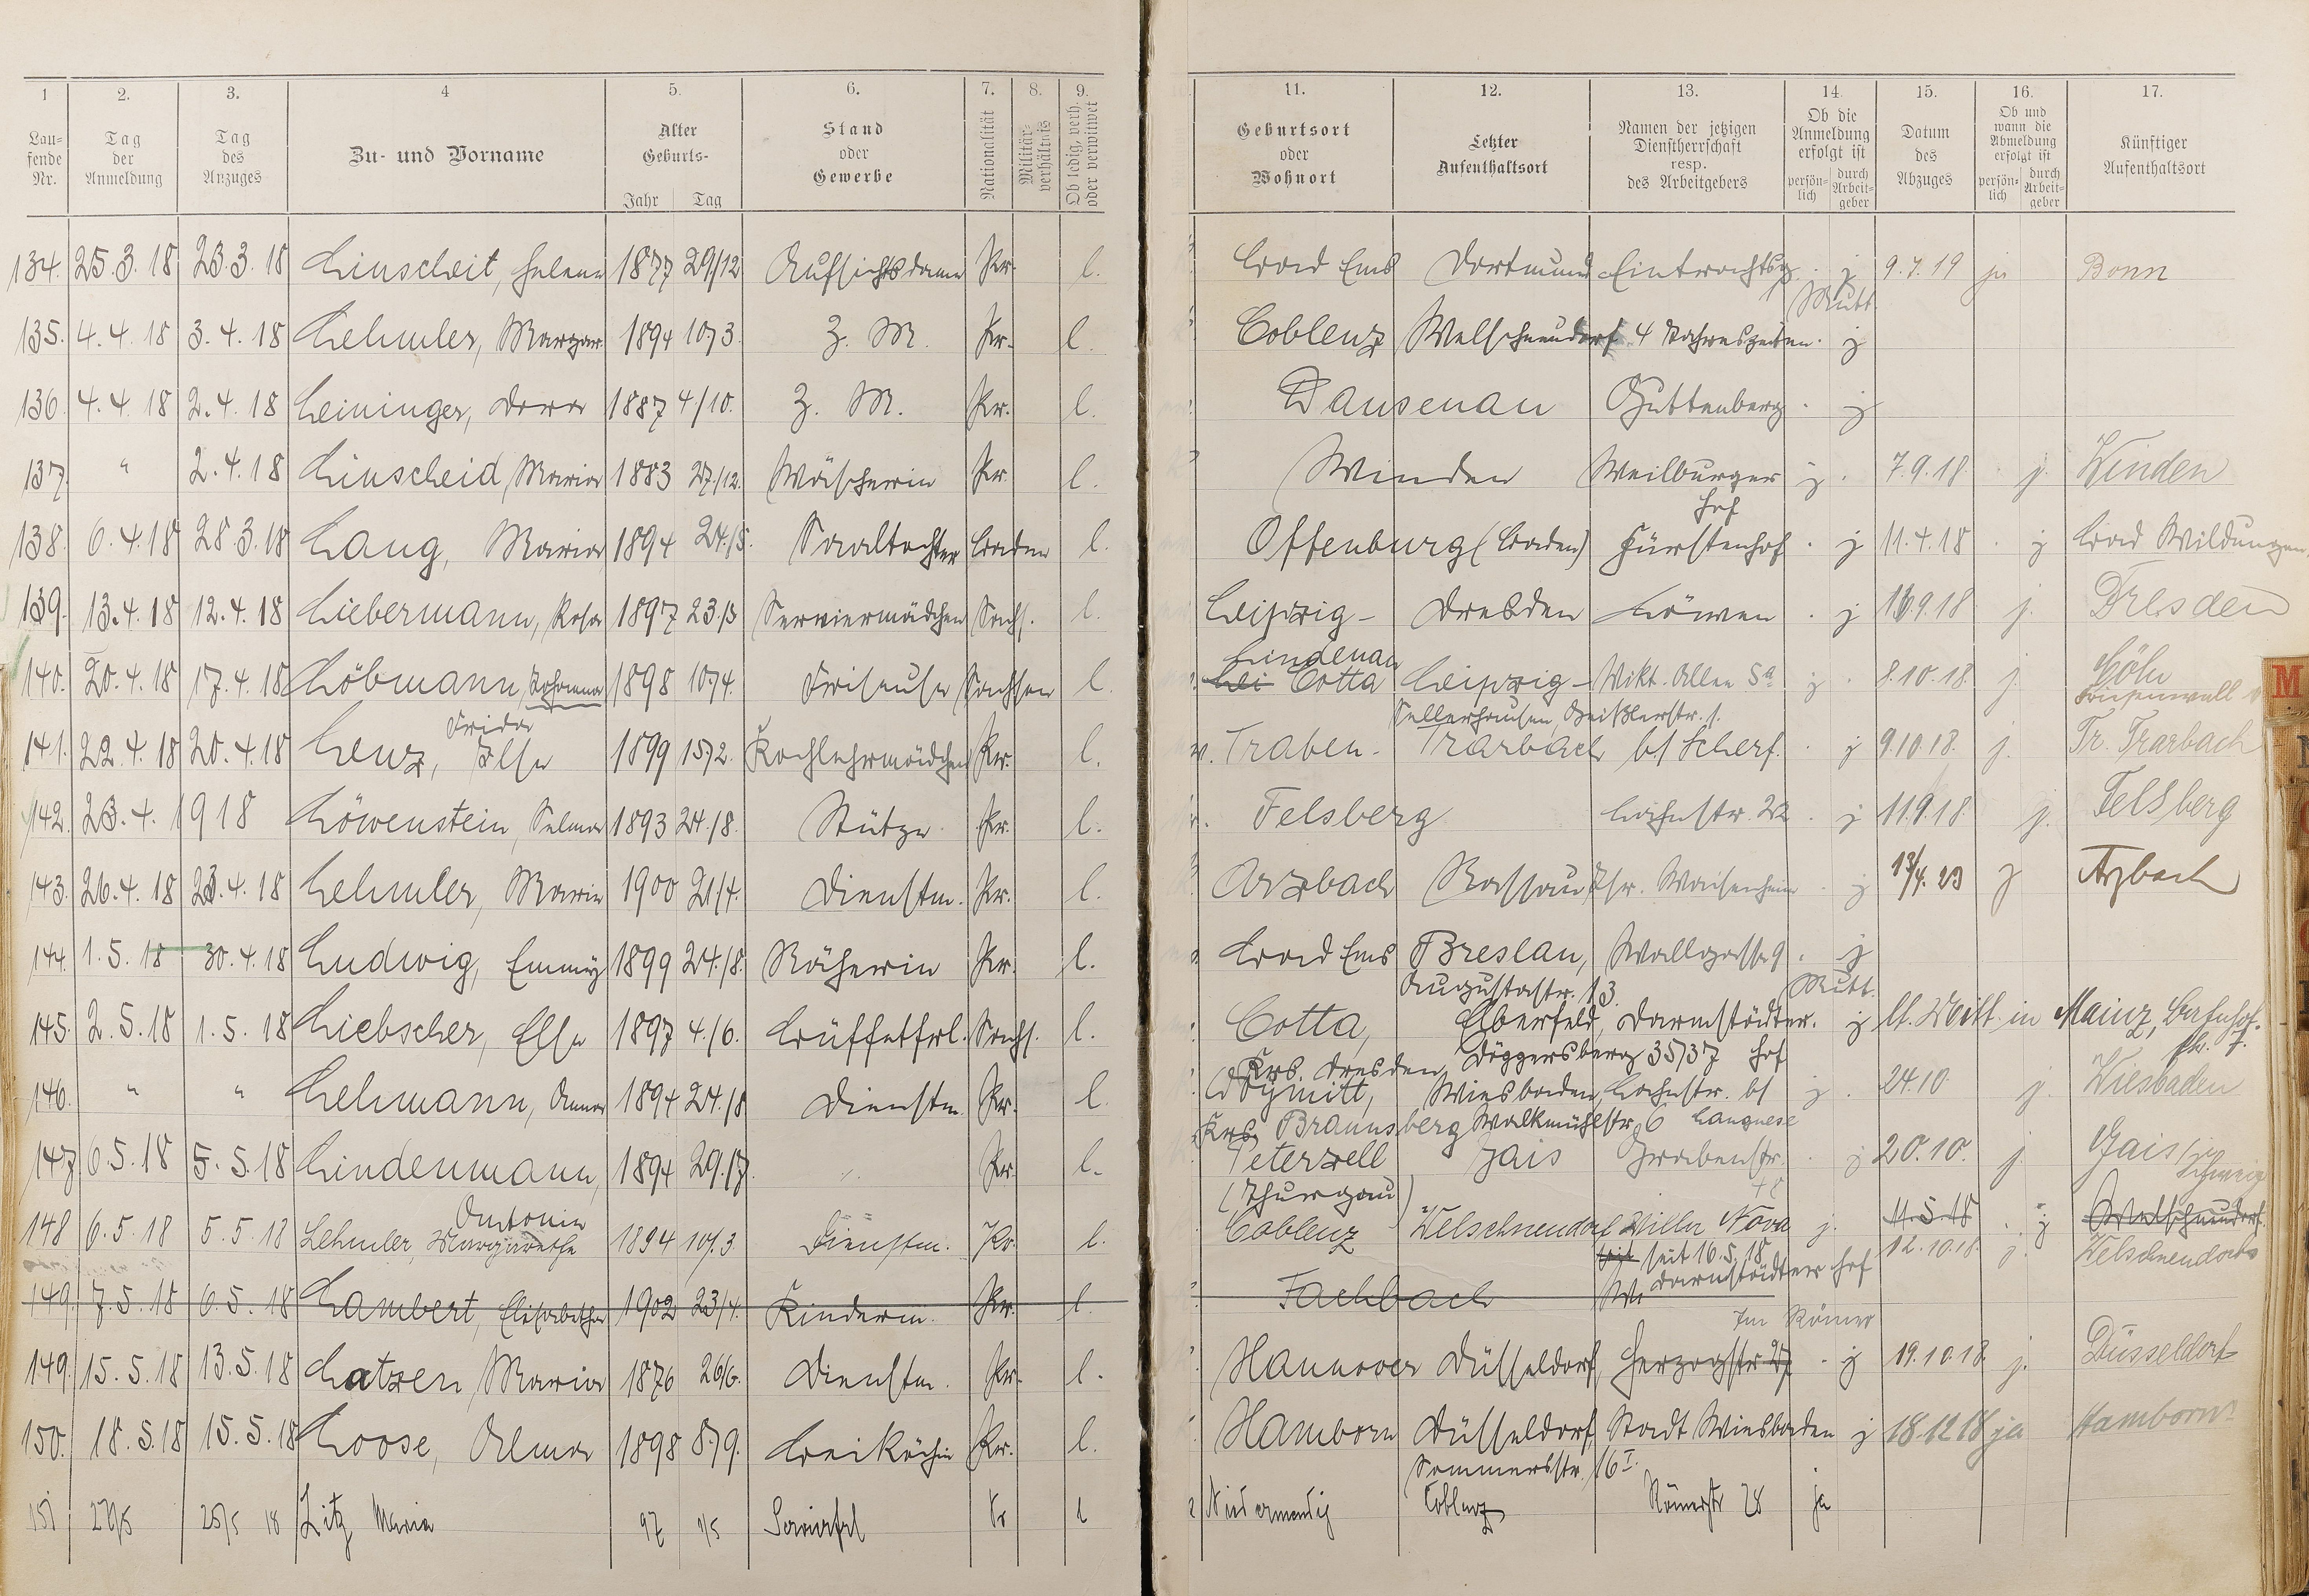 1 2. 3. 4 5. 6. 7. 8. 9. 11. 12. 13. 14. 15. 16. 17.
Laufende Nr. Tag der Anmeldung Tag des Anzuges Zu- und Vorname Alter Geburts- Jahr Tag Stand oder Gewerbe Nationalität Militärverhältnis Ob ledig, verh. oder verwitwet Geburtsort oder Wohnort Letzter Aufenthaltsort Namen der jetzigen Dienstherrschaft resp. des Arbeitgebers Ob die Anmeldung erfolgt ist persönlich durch Arbeitgeber Datum des Abzuges Ob und wann die Abmeldung erfolgt ist persönlich durch Arbeitgeber Künftiger Aufenthaltsort
134. 25.3.18 23.3.18 Linscheit, Helene 1877 29/12 Aufsichtsdame Pr. l. Bad Ems Dortmund Eintrachtsg. j 9.7.19 ja Bonn
Mutt.
135. 4.4.18 3.4.18 Lehmler, Margar. 1894 10/3. Z. M. Pr. l. Coblenz Welschneudorf 4 Jahreszeiten. j
136. 4.4.18 2.4.18 Leininger, Dora 1887 4/10. Z. M. Pr. l. Dausenau Guttenberg j
137. " 2.4.18 Linscheid, Maria 1883 27/12. Wäscherin Pr. l. Winden Weilburger Hof j. 7.9.18. j. Winden
138. 6.4.18 28.3.18 Lang, Maria 1894 24./5. Saaltochter Baden l. Offenburg (Baden) Fürstenhof j 11.4.18 j Bad Wildungen
139. 13.4.18 12.4.18 Liebermann, Rosa 1897 23./3 Serviermädchen Sachs. l. Leipzig- Dresden Löwen j 16.9.18 j. Dresden
Lindenau
140. 20.4.18 17.4.18 Löbmann, Johanna 1898 10/4. Friseuse Sachsen l. Lei Cotta Leipzig- Vikt. Allee 5a j. 8.10.18. j. Cöln
Sellerhausen, Geißlerstr. 1.
Frida
141. 22.4.18 20.4.18 Lenz, Else 1899 15/2. Kochlehrmädchen Pr. l. Traben- Trarbach b/ Scherf. j 9.10.18. j. Tr. Trarbach
142. 23.4.1918 Löwenstein, Selma 1893 24./8. Stütze Pr. l. Felsberg Lahnstr. 22 j 11.9.18. j. Felsberg
143. 26.4.18 23.4.18 Lehmler, Marie 1900 21/4. Dienstm. Pr. l. Arzbach Nassau Isr. Waisenheim j 13/4.23 j Arzbach
144. 1.5.18 30.4.18 Ludwig, Emmy 1899 24./8. Näherin Pr. l. Bad Ems Breslau, Wallgasse 9. j
Augustastr. 13. Mutt.
145. 2.5.18 1.5.18 Liebscher, Else 1897 4./6. Büffetfrl. Sachs. l. Cotta, Elberfeld, Darmstädter. j lt. Mitt. in Mainz, Bahnhof.
Krs. Dresden, Döggersberg 35/37 Hof
146. " " Lehmann, Anna 1894 24./8 Dienstm. Pr. l. Wiesbaden, Lahnstr. b/ j. 24.10. j. Wiesbaden
Krs. Braunsberg Walkmühlstr. 6 Langnese
147. 6.5.18 5.5.18 Lindenmann, 1894 29./7. " Pr. l. Peterzell Gais Grabenstr. j 20.10. j. Gais
(Thurgau) 48 Schweiz
Antonie
148 6.5.18 5.5.18 Lehmler, Margarethe 1894 10/.3 Dienstm. Pr. l. Coblenz Welschneudorf Villa Nova j. 11.5.18 j Welschneudorf.
seit 16.5.18 12.10.18. j. Welschneudorf
Darmstädter Hof
149. 7.5.18 6.5.18 Lambert, Elisabetha 1902 23/4. Kinderm. Pr. l. Fachbach
Im Römer
149. 15.5.18 13.5.18 Latzen, Maria 1876 26/6. Dienstm. Pr. l. Hannover Düsseldorf, Herzogstr 27 j 19.10.18. j. Düsseldorf
150. 18.5.18 15.5.18 Loose, Alma 1898 8/9. Beiköchin Pr. l. Hamborn Düsseldorf, Stadt Wiesbaden j 18.12.18 ja Hamborn
Sommersstr. 16 I.
151 27/5 25/5 18 Litz Maria 97 1/5 Servierfrl Pr l Niedermendig Coblenz Römerstr 28 ja
M